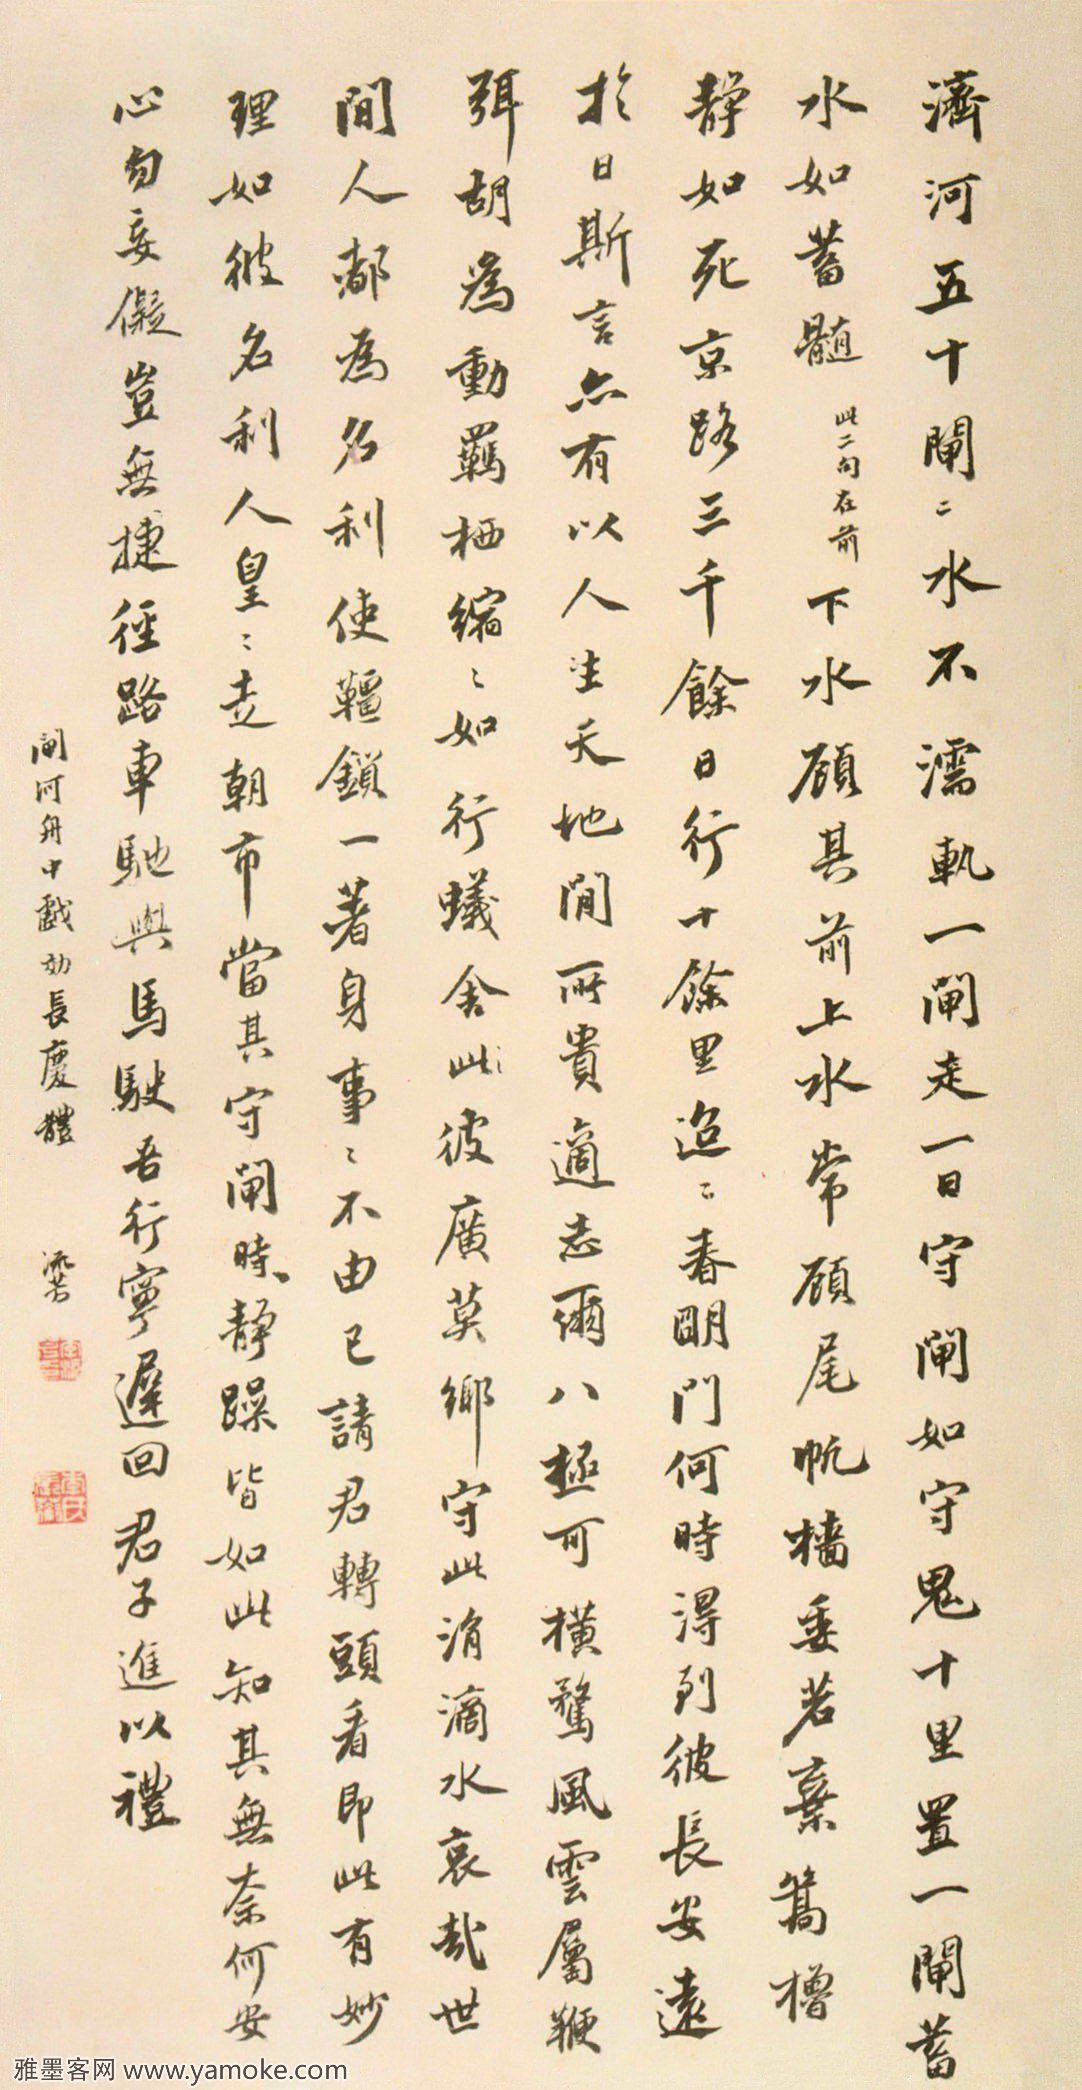 濟河五十閘〻水不濡軌一閘走一日守閘如守鬼十里置一閘蓄
水如蓄髓此二句在前下水顧其前上水常顧尾帆檣委若棄篙櫓
靜如死京路三千餘日行十餘里迢〻春明門何時得到彼長安遠
於日斯言亦有以人生天地間所貴適志爾八極可橫騖風雲屬鞭
弭胡為動羈栖縮〻如行蟻舍此彼廣莫鄉守此涓滴水哀哉世
間人都為名利使韁鎖一著身事〻不由已請君轉頭看即此有妙
理如彼名利人皇〻走朝市當其守閘時靜躁皆如此知其無奈何安
心勿妄儗豈無捷徑路車馳與馬駛吾行寧遲回君子進以禮
閘河舟中戲効長慶體
雅墨客网 www.yamoke.com